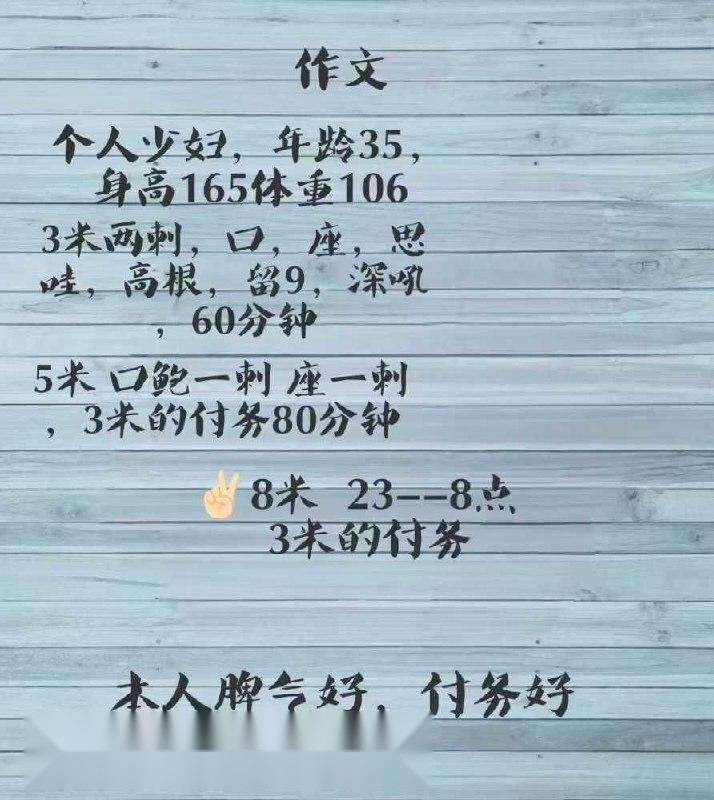 作文
个人少妇，年龄35，
身高165体重106
3米两刺，口，座，思
哇，高根，留9，深吼
，60分钟
5米 口鲍一刺 座一刺
，3米的付务80分钟
✌🏻8米 23--8点
3米的付务
本人脾气好，付务好